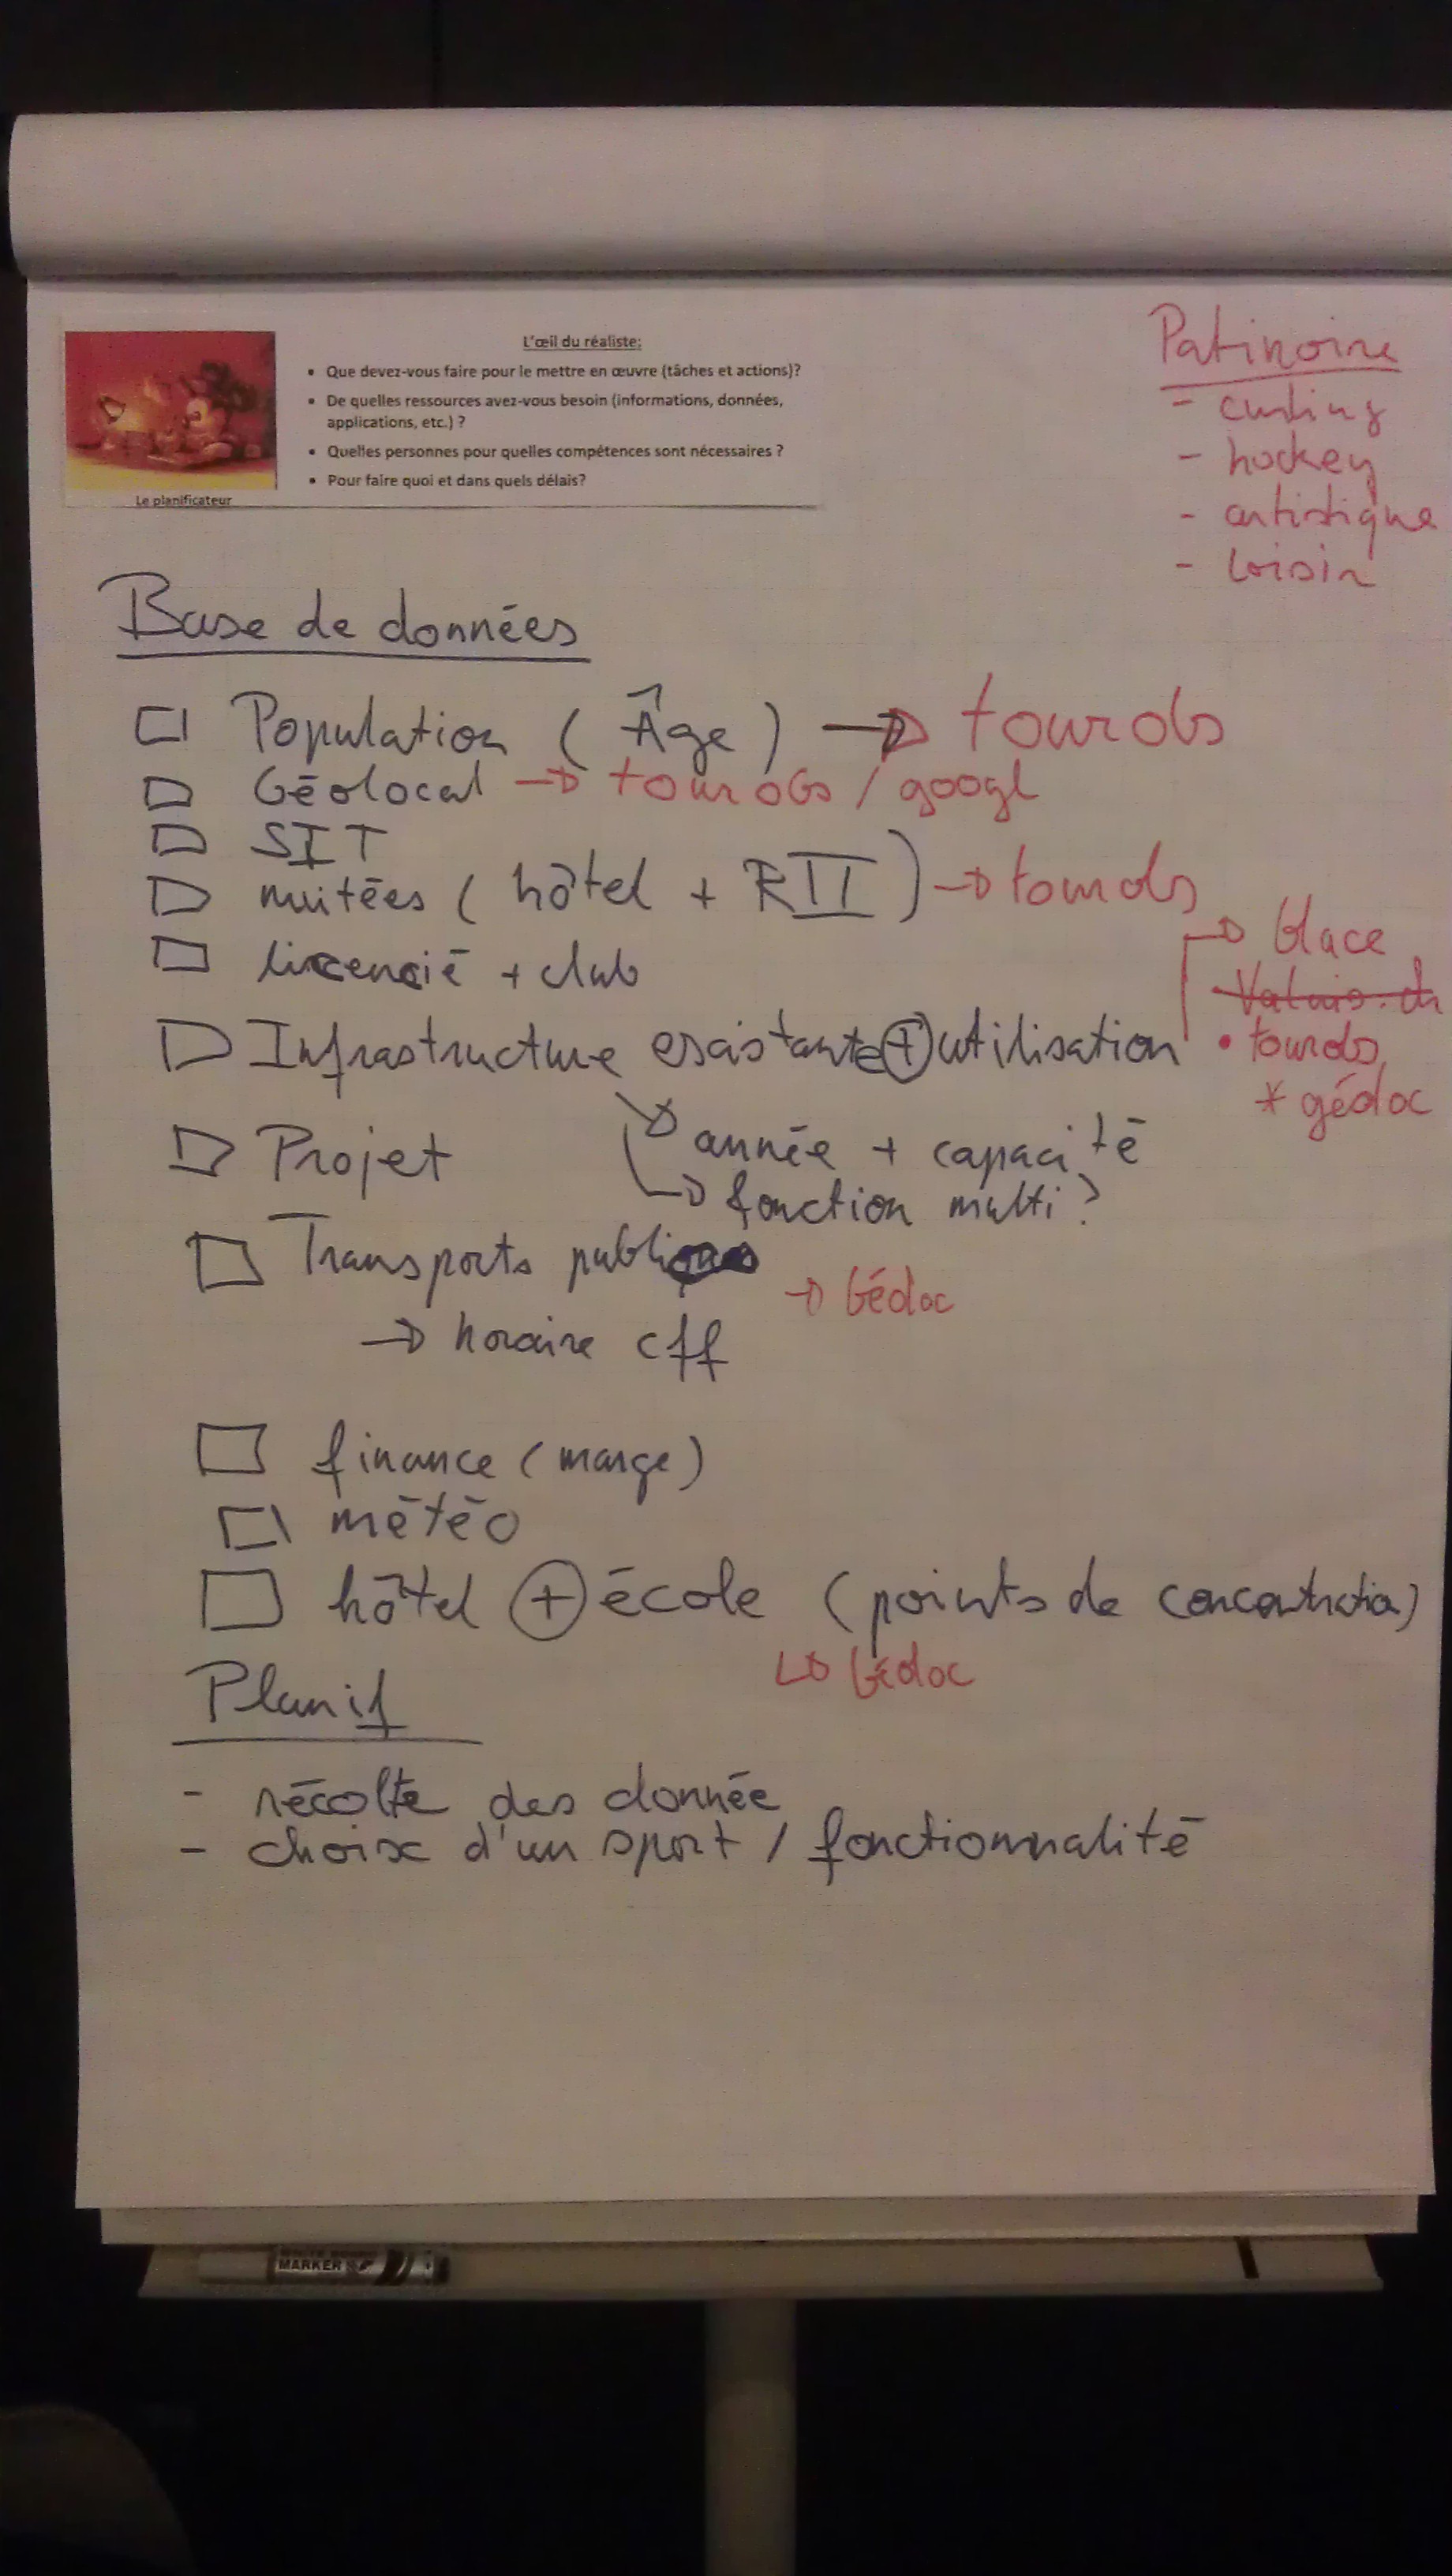 L'œil du réaliste:
• Que devez-vous faire pour le mettre en œuvre (tâches et actions)?
• De quelles ressources avez-vous besoin (informations, données,
applications, etc.) ?
• Quelles personnes pour quelles compétences sont nécessaires ?
• Pour faire quoi et dans quels délais?
Le planificateur
Patinoire
- curling
- hockey
- artistique
- loisir
Base de données
Population (Âge) → tourobs
Géolocal → tourobs / googl
SIT
nuitées (hôtel + RII) → tourobs
licencié + club
Infrastructure existante + utilisation
→ glace
Valais.ch
• tourobs
* gédoc
→ année + capacité
→ fonction multi?
Projet
Transports publi
→ Gédoc
→ horaire cff
finance (marge)
météo
hôtel + école (points de concentration)
↳ Gédoc
Planif
- récolte des donnée
- choix d'un sport / fonctionnalité
MARKER